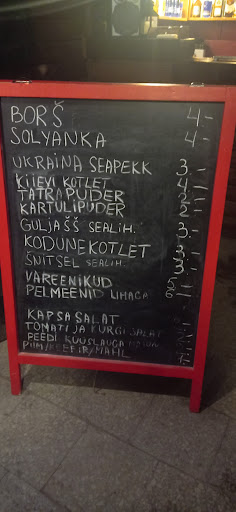 BORŠ 4-
SOLYANKA 4-
UKRAINA SEAPEKK 3.-
KIIEVI KOTLET 4.-
TATRAPUDER 2.-
KARTULIPUDER 2.-
GULJAŠŠ SEALIH. 3.-
KODUNE KOTLET 3.-
ŠNITSEL SEALIH. 3.-
VAREENIKUD
PELMEENID LIHAGA 6.-
KAPSASALAT
TOMATI JA KURGI SALAT
PEEDI KÜÜSLAUGU
PIIM/KEEFIR/MAHL